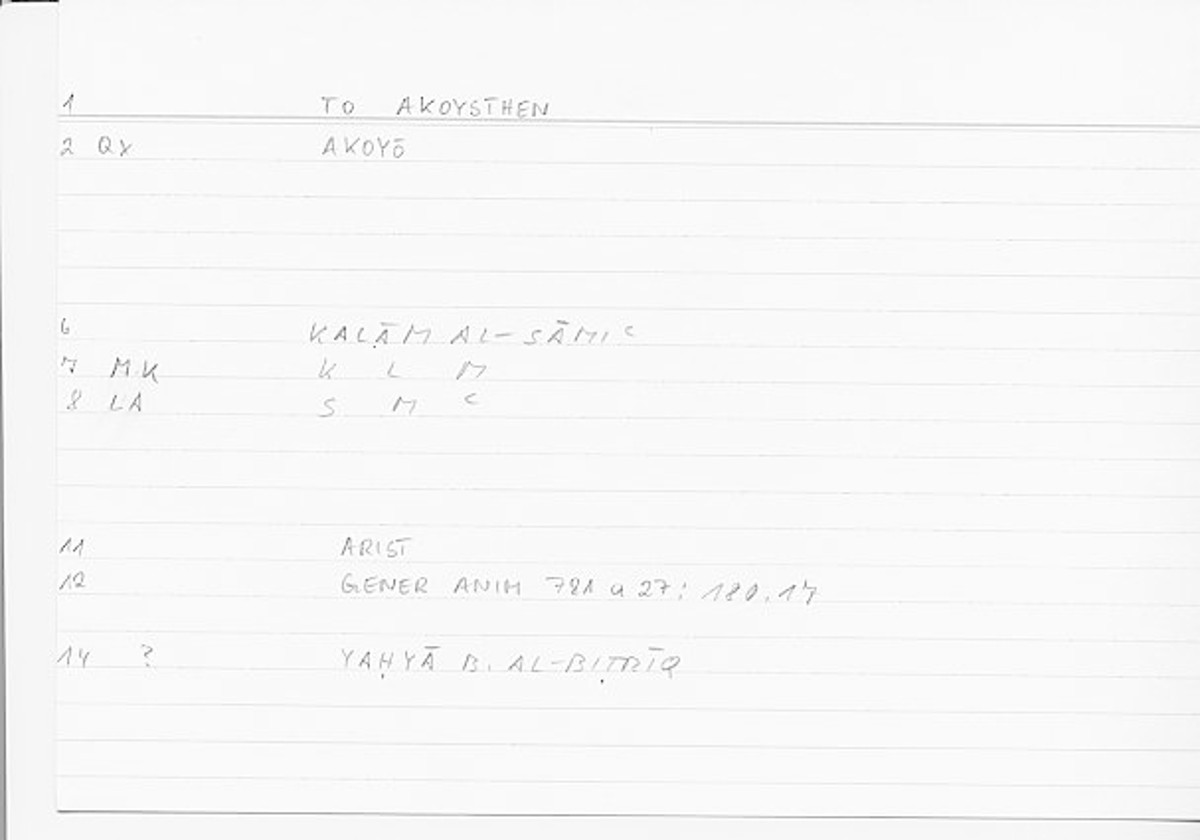 1 TO AKOYSTHEN
2 QX AKOYŌ
6 KALĀM AL-SĀMIʿ
7 MK K L M
8 LA S M ʿ
11 ARIST
12 GENER ANIM 781 a 27: 180.17
14 ? YAḤYĀ B. AL-BIṬRĪQ